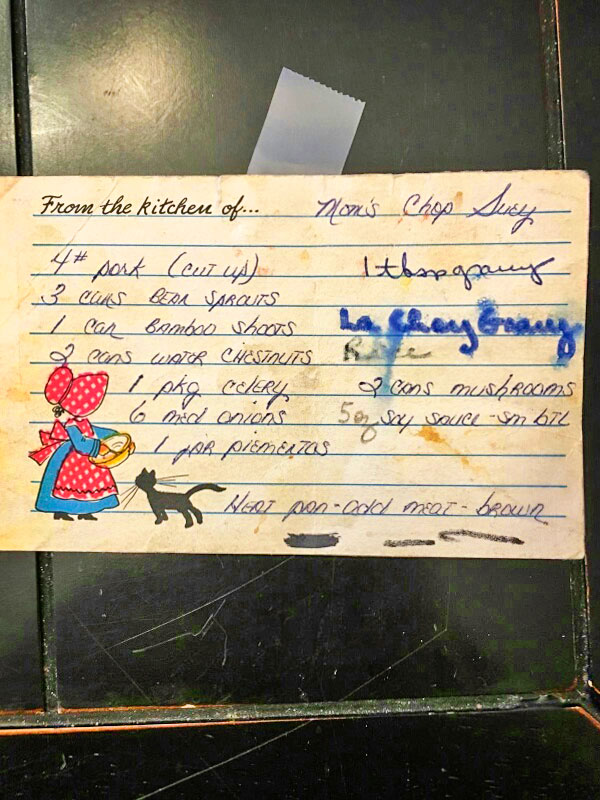 From the kitchen of... Mom's Chop Suey
4# pork (cut up) 1 tbsp gravy
3 cans BEAN SPROUTS
1 can BAMBOO SHOOTS La Choy Gravy
2 cans WATER CHESTNUTS Rice
1 pkg CELERY 2 cans mushrooms
6 med onions 5 oz soy sauce - sm btl
1 JAR PIEMENTOS
HEAT pan - add meat - brown